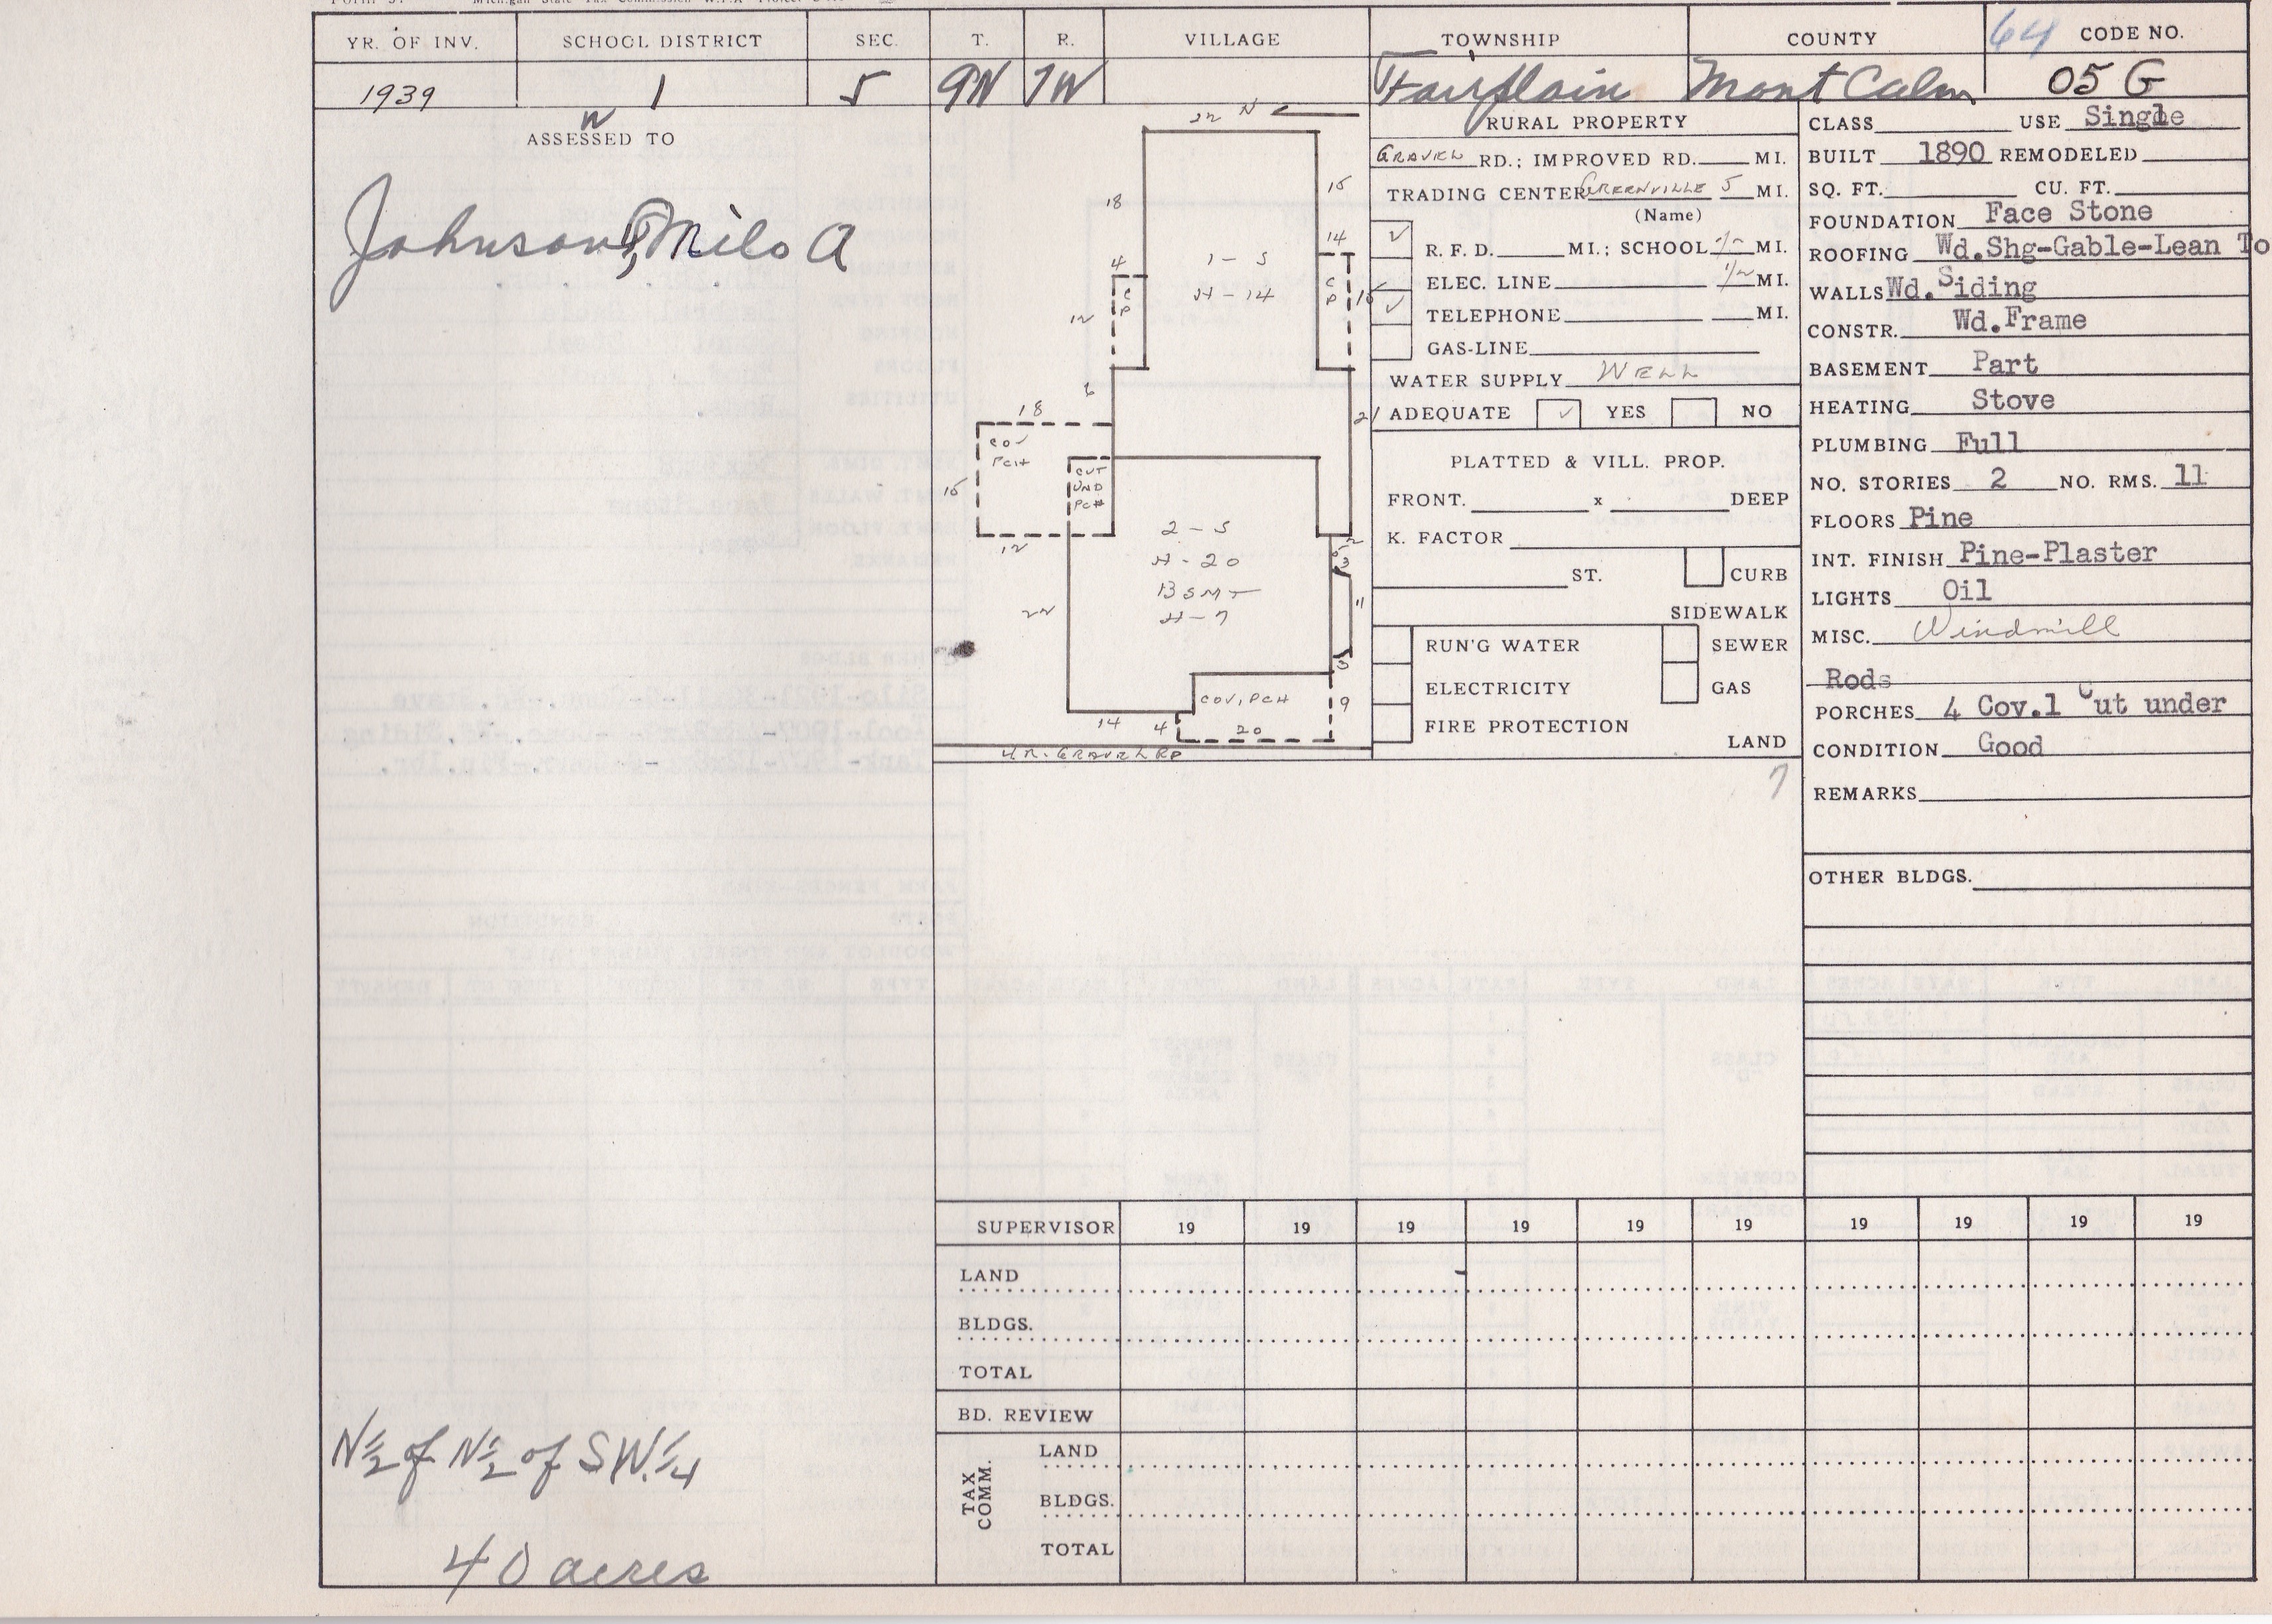 Michigan State Tax Commission W.P.A
YR. OF INV. SCHOOL DISTRICT SEC. T. R. VILLAGE TOWNSHIP COUNTY 64 CODE NO.
1939 1 5 9N 7W Fairplain MontCalm 05 G
ASSESSED TO
Johnson, Milo A
N 1/2 of N 1/2 of SW. 1/4
40 acres
22 N
18
15
14
4
1-S
H-14
C P
C P
12
15
6
18
21
COV PCH
CUT UND PCH
15
12
2
2-S
H-20
BSMT
H-7
22
3
11
3
COV, PCH
9
14 4 20
H.R. GRAVEL RD
RURAL PROPERTY
GRAVEL RD.; IMPROVED RD. MI.
TRADING CENTER GREENVILLE 5 MI.
(Name)
✓ R. F. D. MI.; SCHOOL 1/2 MI.
ELEC. LINE 1/2 MI.
✓ TELEPHONE MI.
GAS-LINE
WATER SUPPLY WELL
ADEQUATE ✓ YES NO
PLATTED & VILL. PROP.
FRONT. x DEEP
K. FACTOR
ST. CURB
SIDEWALK
RUN'G WATER SEWER
ELECTRICITY GAS
FIRE PROTECTION
LAND
7
CLASS USE Single
BUILT 1890 REMODELED
SQ. FT. CU. FT.
FOUNDATION Face Stone
ROOFING Wd.Shg-Gable-Lean To
WALLS Wd.Siding
CONSTR. Wd.Frame
BASEMENT Part
HEATING Stove
PLUMBING Full
NO. STORIES 2 NO. RMS. 11
FLOORS Pine
INT. FINISH Pine-Plaster
LIGHTS Oil
MISC. Windmill
Rods
PORCHES 4 Cov.1 Cut under
CONDITION Good
REMARKS
OTHER BLDGS.
SUPERVISOR 19 19 19 19 19 19 19 19 19 19
LAND
BLDGS.
TOTAL
BD. REVIEW
TAX COMM.
LAND
BLDGS.
TOTAL